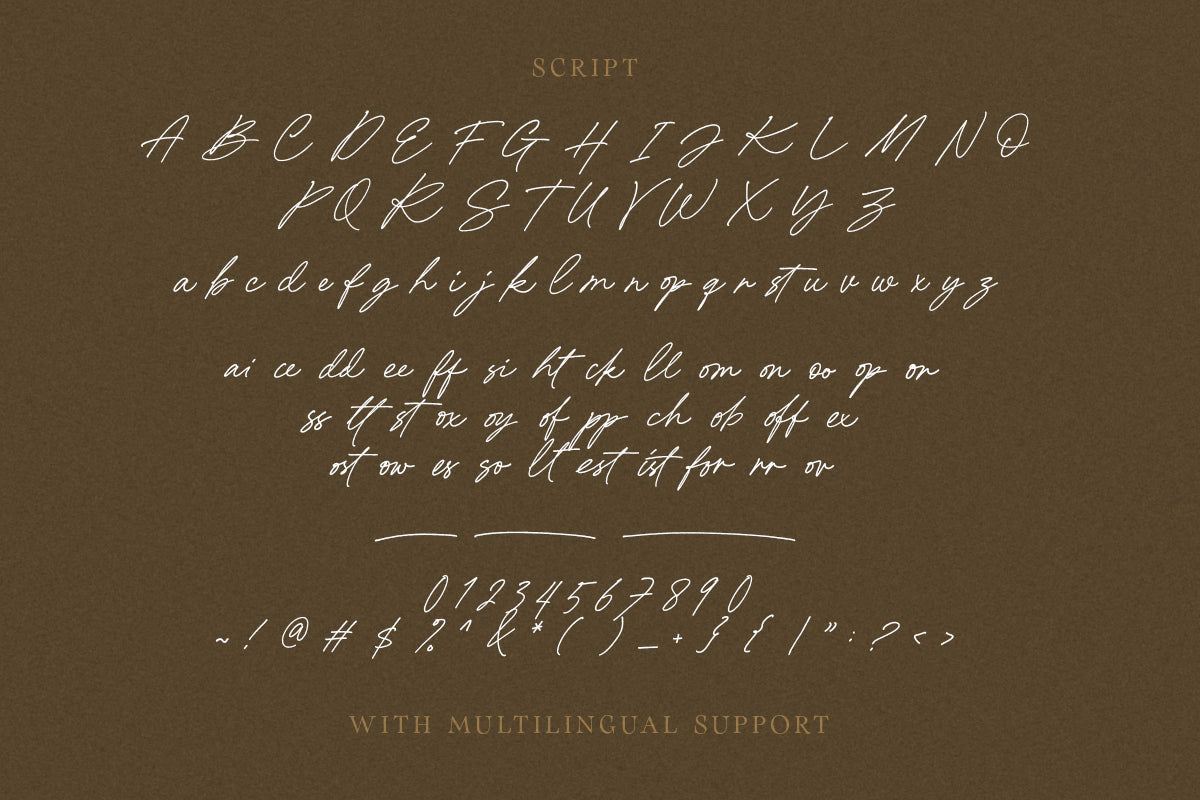 SCRIPT
A B C D E F G H I J K L M N O
P Q R S T U V W X Y Z
a b c d e f g h i j k l m n o p q r s t u v w x y z
ai ce dd ee ff si ht ck ll om on oo op or
ss tt st ox oy of pp ch ob off ex
ost ow es so lt est ist for rr or
0 1 2 3 4 5 6 7 8 9 0
~ ! @ # $ % ^ & * ( ) _ + } { | " : ? < >
WITH MULTILINGUAL SUPPORT